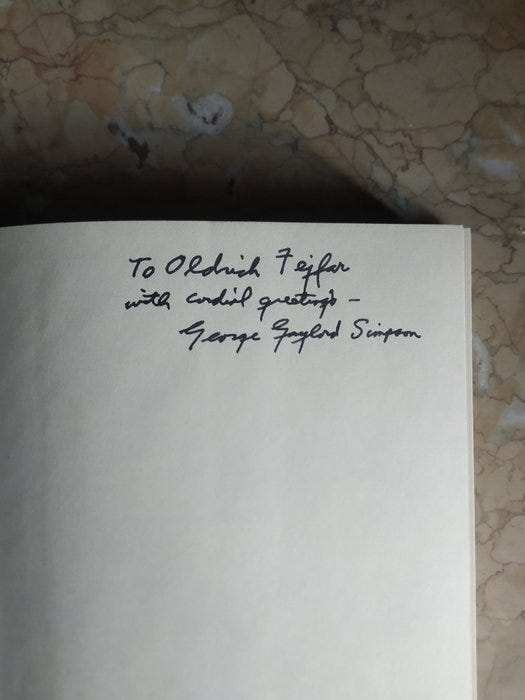 To Oldrich Fejfar
with cordial greetings –
George Gaylord Simpson